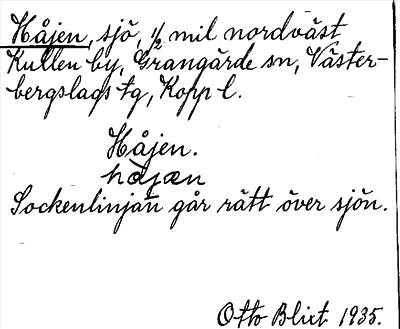 Håjen, sjö, 1/2 mil nordväst
Kullen by, Grangärde sn, Väster-
bergslags tg, Kopp l.
Håjen.
hàjæn
Sockenlinjan går rätt över sjön.
Otto Blixt 1935.